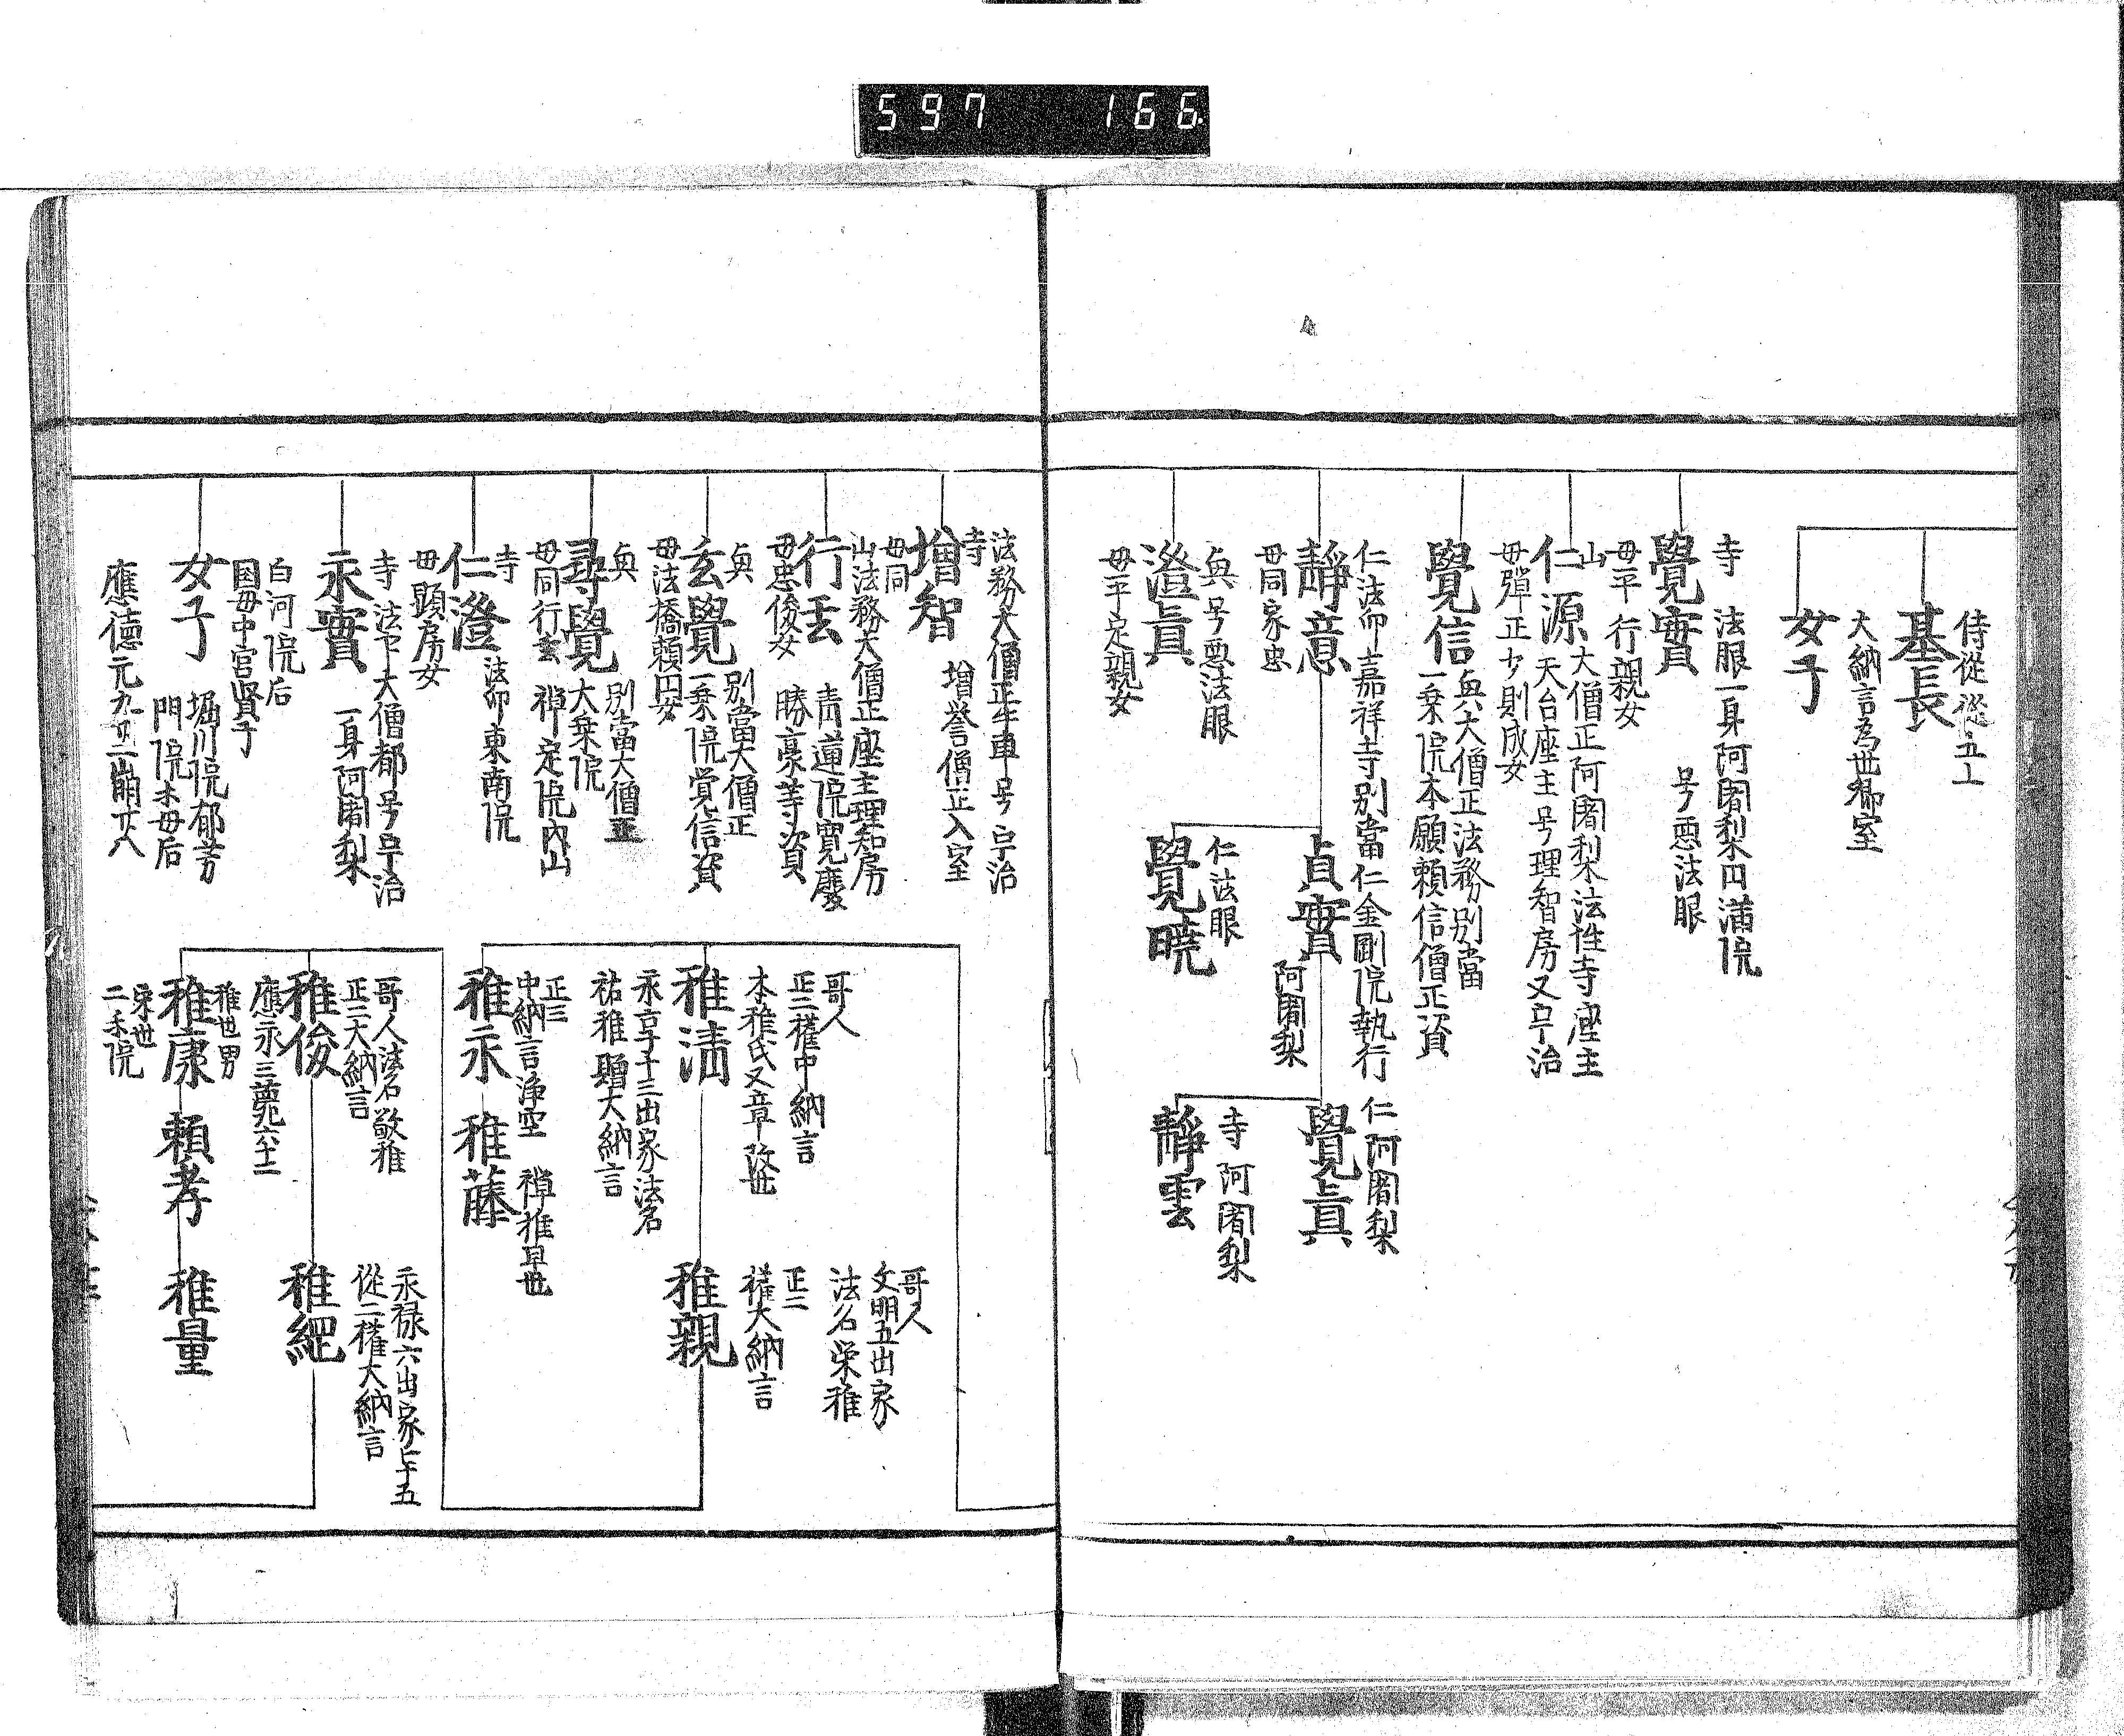 597 166
侍従 従五上
基長
大納言為世卿室
女子
寺 法眼一身阿闍梨円満院
号悪法眼
覺實
母平行親女
山
大僧正阿闍梨法性寺座主
仁源
天台座主号理智房又号宇治
母弾正少則成女
興大僧正法務別當
覺信
一乗院本願頼信僧正資
仁法印嘉祥寺別當仁金剛院執行
靜意
母同家忠
興号悪法眼
澄眞
母平定親女
貞實
阿闍梨
仁法眼
覺暁
仁阿闍梨
覺眞
寺阿闍梨
靜雲
法務大僧正牛車号宇治
寺
増智
増誉僧正入室
母同
山法務大僧正座主理知房
行玄
青蓮院寛慶
勝豪等資
母忠俊女
興
別當大僧正
玄覺
一乗院覚信資
母法橋頼円女
興
別當大僧正
尋覺
大乗院
禅定院内山
母同行玄
寺
仁澄
法印東南院
母顕房女
寺法印大僧都号宇治
永實
一身阿闍梨
白河院后
国母中宮賢子
女子
堀川院郁芳
門院等母后
應徳元九廿二崩廿八
哥人
正二権中納言
本雅氏又章改世
雅清
永享十三出家法名
祐雅贈大納言
正三
中納言浄空
雅永
禅雅早世
雅藤
哥人
文明五出家
法名栄雅
正二
権大納言
雅親
哥人法名敬雅
正二大納言
雅俊
應永三薨六十二
永禄六出家七十五
従二権大納言
雅綱
雅世男
雅康
宋世
二楽院
頼孝
雅量